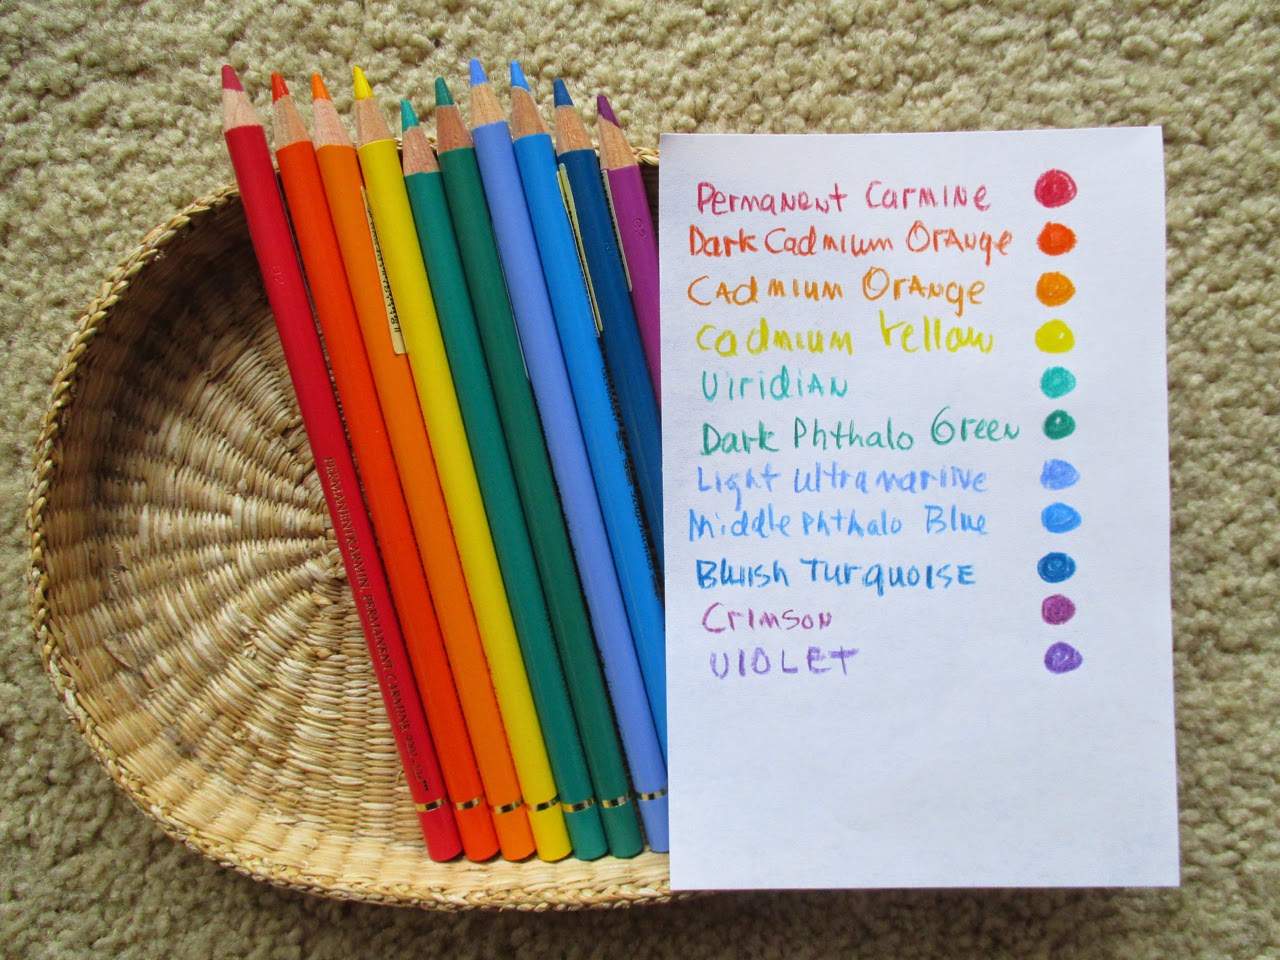 Permanent Carmine
Dark Cadmium Orange
Cadmium Orange
Cadmium Yellow
Viridian
Dark Phthalo Green
Light Ultramarine
Middle Phthalo Blue
Bluish Turquoise
Crimson
VIOLET
PERMANENTKARMIN, PERMANENT CARMINE